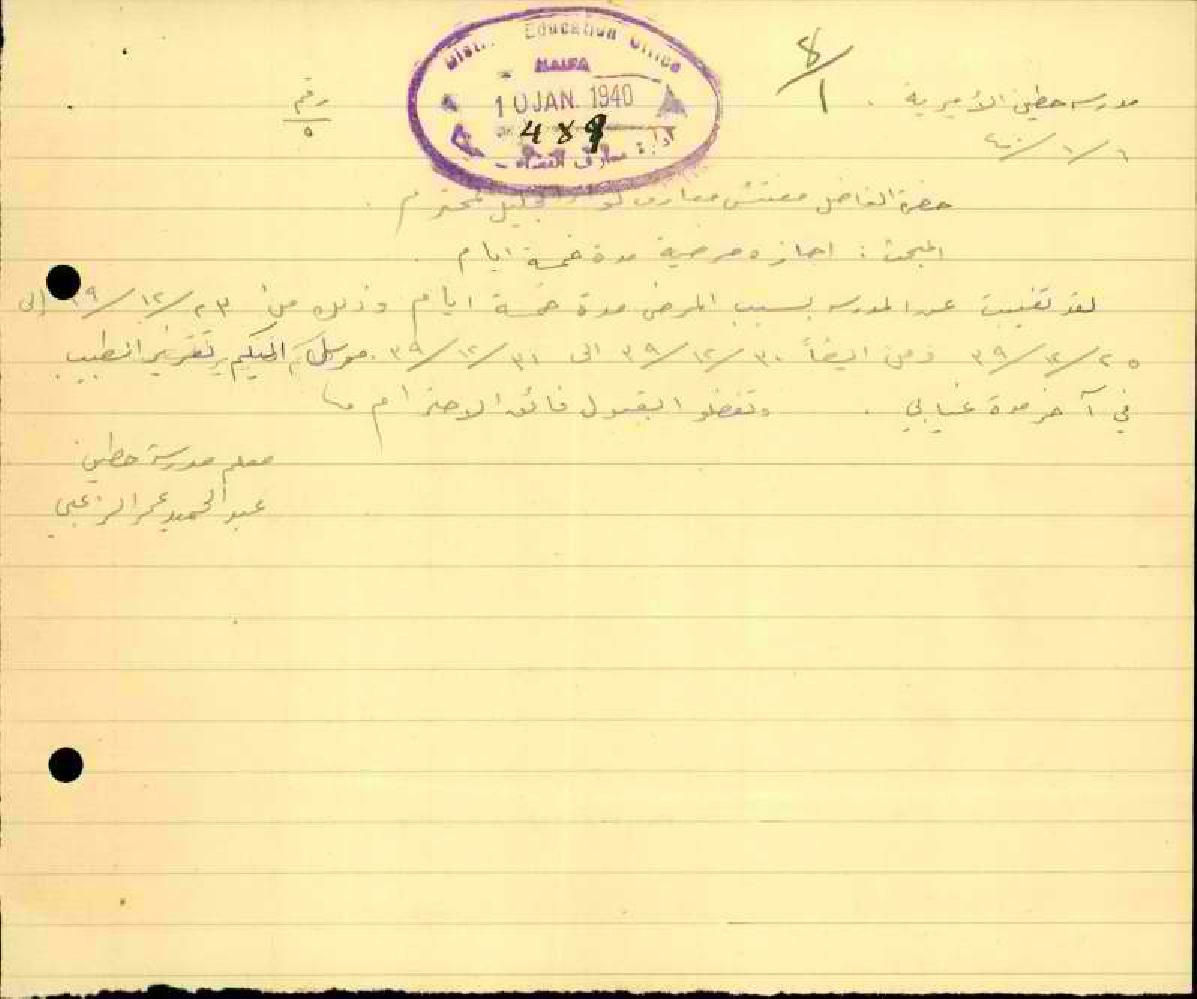 District Education Office
HAIFA
10 JAN. 1940
489
إدارة معارف القضاء
8/1
رقم
٥
مدرسة حطين الأميرية
٦/١/٤٠
حضرة الفاضل مفتش معارف لواء الجليل المحترم .
المبحث : اجازه مرضية مدة خمسة ايام .
لقد تغيبت عن المدرسه بسبب المرض مدة خمسة ايام وذلك من ٢٣/١٢/٣٩ الى
٢٥/١٢/٣٩ ومن ايضاً ٣٠/١٢/٣٩ الى ٣١/١٢/٣٩ . مرسل اليكم تقرير الطبيب
في آخر مدة غيابي . وتفضلوا بقبول فائق الاحترام
معلم مدرسة حطين
عبد الحميد عمر الزعبي